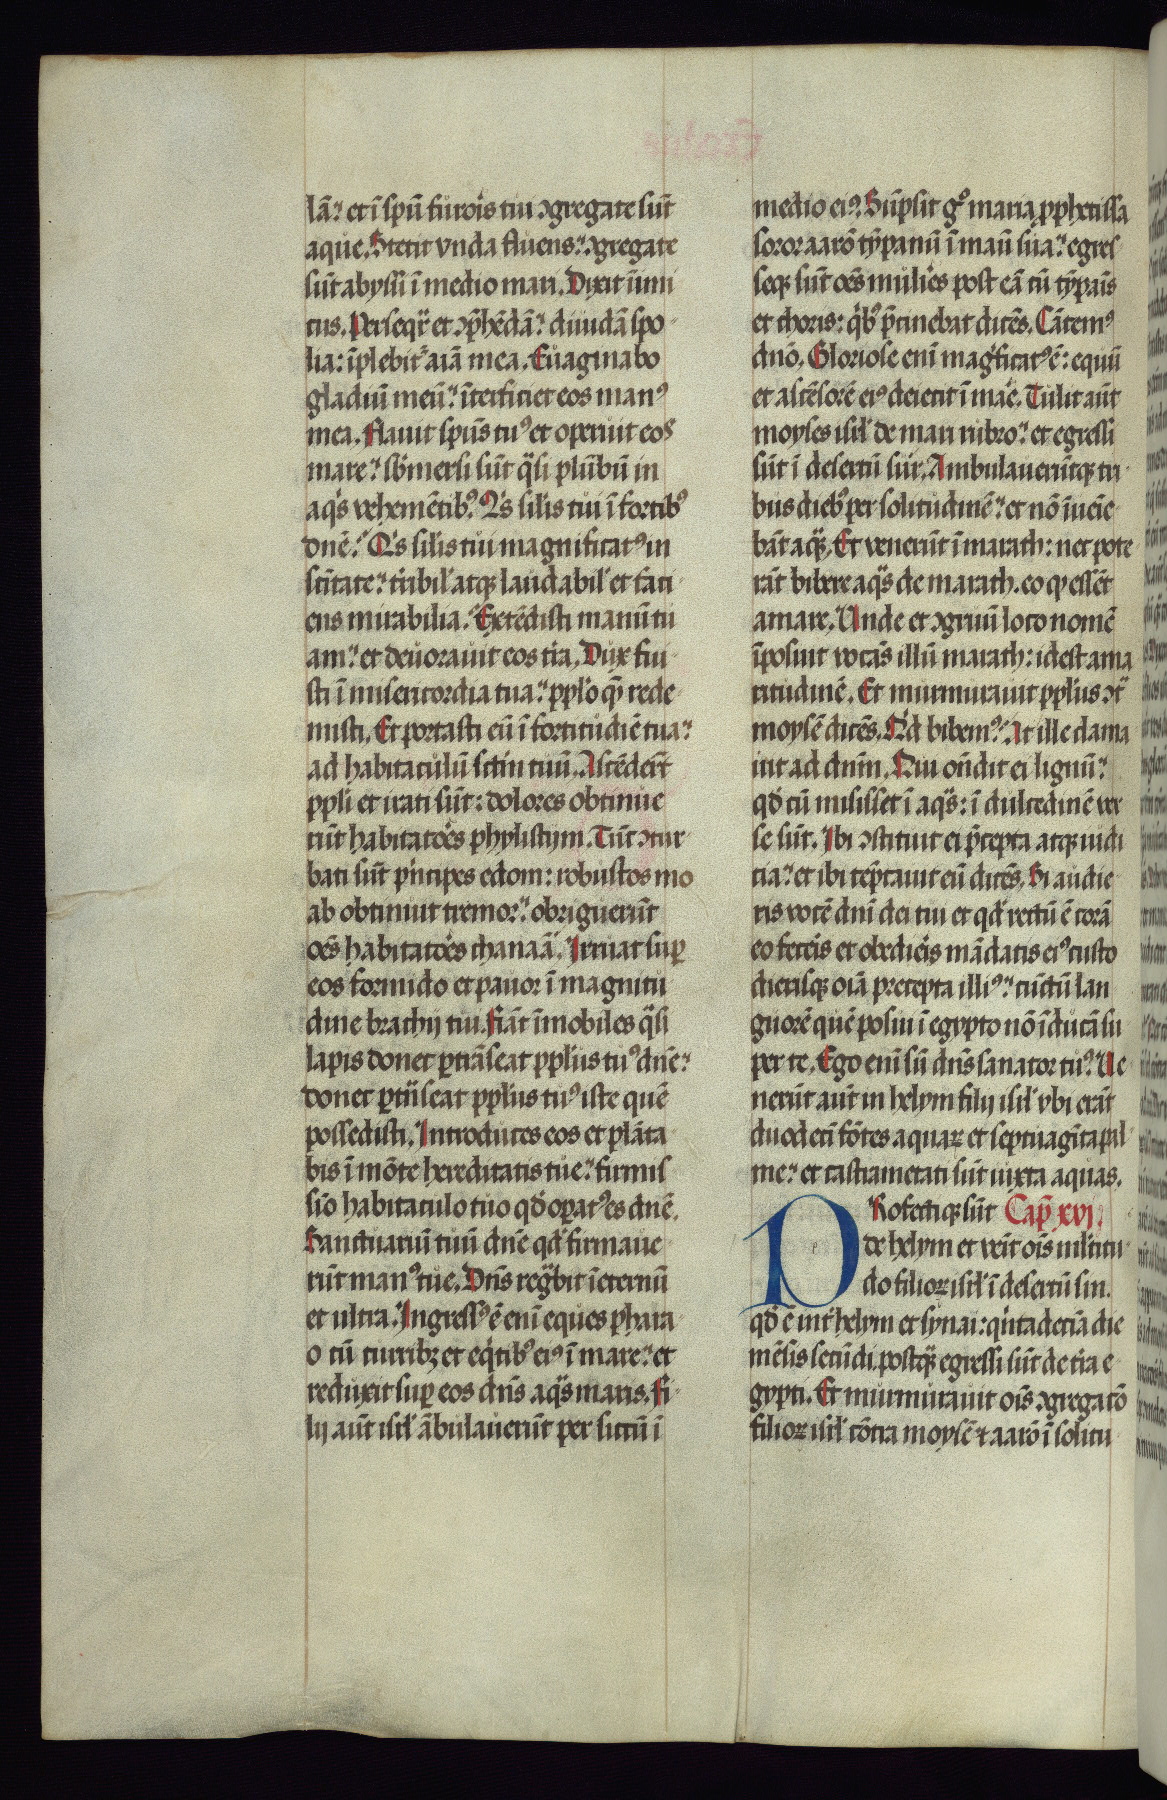 lā: et ī spū furoīs tui ꝯgregate sūt
aque. Stetit vnda fluens: ꝯgregate
sūt abyssi ī medio mari. Dixit inimi
cus. Perseqr̄ et ꝯp̄hēdā: diuidā spo
lia: īplebit᷑ aīā mea. Euaginabo
gladiū meū: īterficiet eos manꝰ
mea. Flauit spūs tuꝰ et operuit eos
mare: sb̄mersi sūt q̄si plūbū in
aqͥs vehemētibꝰ. Qͥs silis tui ī fortibꝰ
dnē: Qͥs silis tui magnificatꝰ in
sc̄itate: tͥribil' atqꝫ laudabil' et faci
ens mirabilia. Extēdisti manū tu
am: et deuorauit eos tͥra. Dux fui
sti ī misericordia tua: ppl'o qm̄ rede
misti. Et portasti eū ī fortitudīe tua:
ad habitaculū sc̄tm tuū. Ascēderūt
ppl'i et irati sūt: dolores obtinue
rūt habitatōes phylistym. Tūc ꝯtur
bati sūt pͥncipes edom: robustos mo
ab obtinuit tremor: obriguerūt
oēs habitatōes chanaā. Irruat suꝑ
eos formido et pauor ī magnitu
dine brachij tui. Fiāt īmobiles q̄si
lapis donec ꝑtrāseat ppl'us tuꝰ dnē:
donec ꝑtͣseat ppl'us tuꝰ iste quē
possedisti. Introduces eos et plāta
bis ī mōte hereditatis tue: firmis
sīo habitaculo tuo qd̄ oꝑatꝰ es dnē.
Sanctuariū tuū dnē qd̄ firmaue
rūt manꝰ tue. Dn̄s regͣbit īeternū
et ultra. Ingressꝰ ē enī eques phara
o cū curribꝫ et eqͥtibꝰ eiꝰ ī mare: et
reduxit suꝑ eos dn̄s aqͣs maris. Fi
lij aūt isrl' ābulauerūt per siccū ī
medio eiꝰ. Sūpsit gͦ maria ꝓphetissa
soror aarō tȳpanū ī manū sua: egres
seqꝫ sūt oēs mulīes post eā cū tȳpaīs
et choris: qͥbꝰ p̄cinebat dicēs. Cātemꝰ
dnō. Gloriose enī magͥficatꝰ ē: equū
et ascēsorē eiꝰ deiecit ī maē. Tulit aūt
moyses isrl' de mari rubro: et egressi
sūt ī desertū sur. Ambulauerūtqꝫ tri
bus diebꝰ per solitudinē: et nō īueīe
bāt aqͣꝫ. Et venerūt ī marath: nec pote
rāt bibere aqͣs de marath. eo qꝙ essēt
amare. Unde et ꝯgruū loco nomē
īposuit vocās illū marath: id est ama
ritudinē. Et murmurauit ppl'us ꝯtͣ
moysē dicēs. Qͥd bibemꝰ: At ille clama
uit ad dn̄m. Qui on̄dit ei lignū:
qd̄ cū misisset ī aqͣs: ī dulcedinē ver
se sūt. Ibi ꝯstituit ei p̄cepta atqꝫ iudi
cia: et ibi tēptauit eū dicēs. Si audie
ris vocē dnī dei tui et qd̄ rectū ē corā
eo feceīs et obedieīs mādatis eiꝰ custo
dierisqꝫ oīa precepta illiꝰ: cūctū lan
guorē quē posui ī egypto nō īducā su
per te. Ego enī sū dn̄s sanator tuꝰ. Ue
nerūt aūt in helym filij isrl' vbi erāt
duodecī fōtes aquaꝝ et septuagīta pal
me: et castrametati sūt iuxta aquas.
PRofectiqꝫ sūt Cap̄ xvj.
de helym et veīt oīs ml̄titu
do filioꝝ isrl' ī desertū sin.
qd̄ ē int' helym et synai: qͥntadecīa die
mēsis secūdi. postqͣꝫ egressi sūt de tͥra e
gypti. Et murmurauit oīs ꝯgregatō
filioꝝ isrl' cōtra moysē ⁊ aarō ī solitu